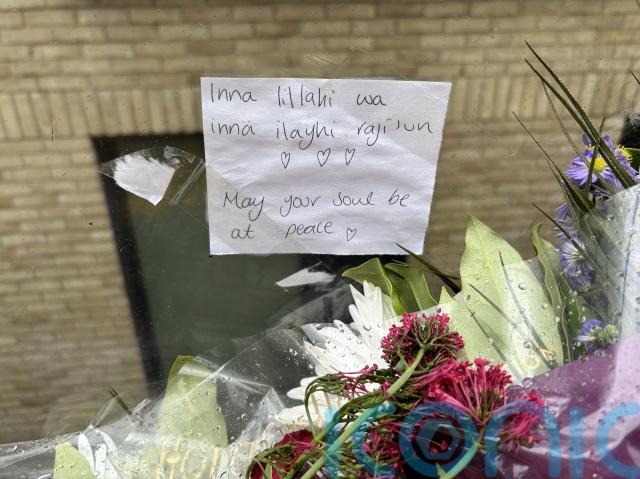 Inna lillahi wa
innā ilayhi raji'un
♡ ♡ ♡
May your soul be
at peace ♡
iconic